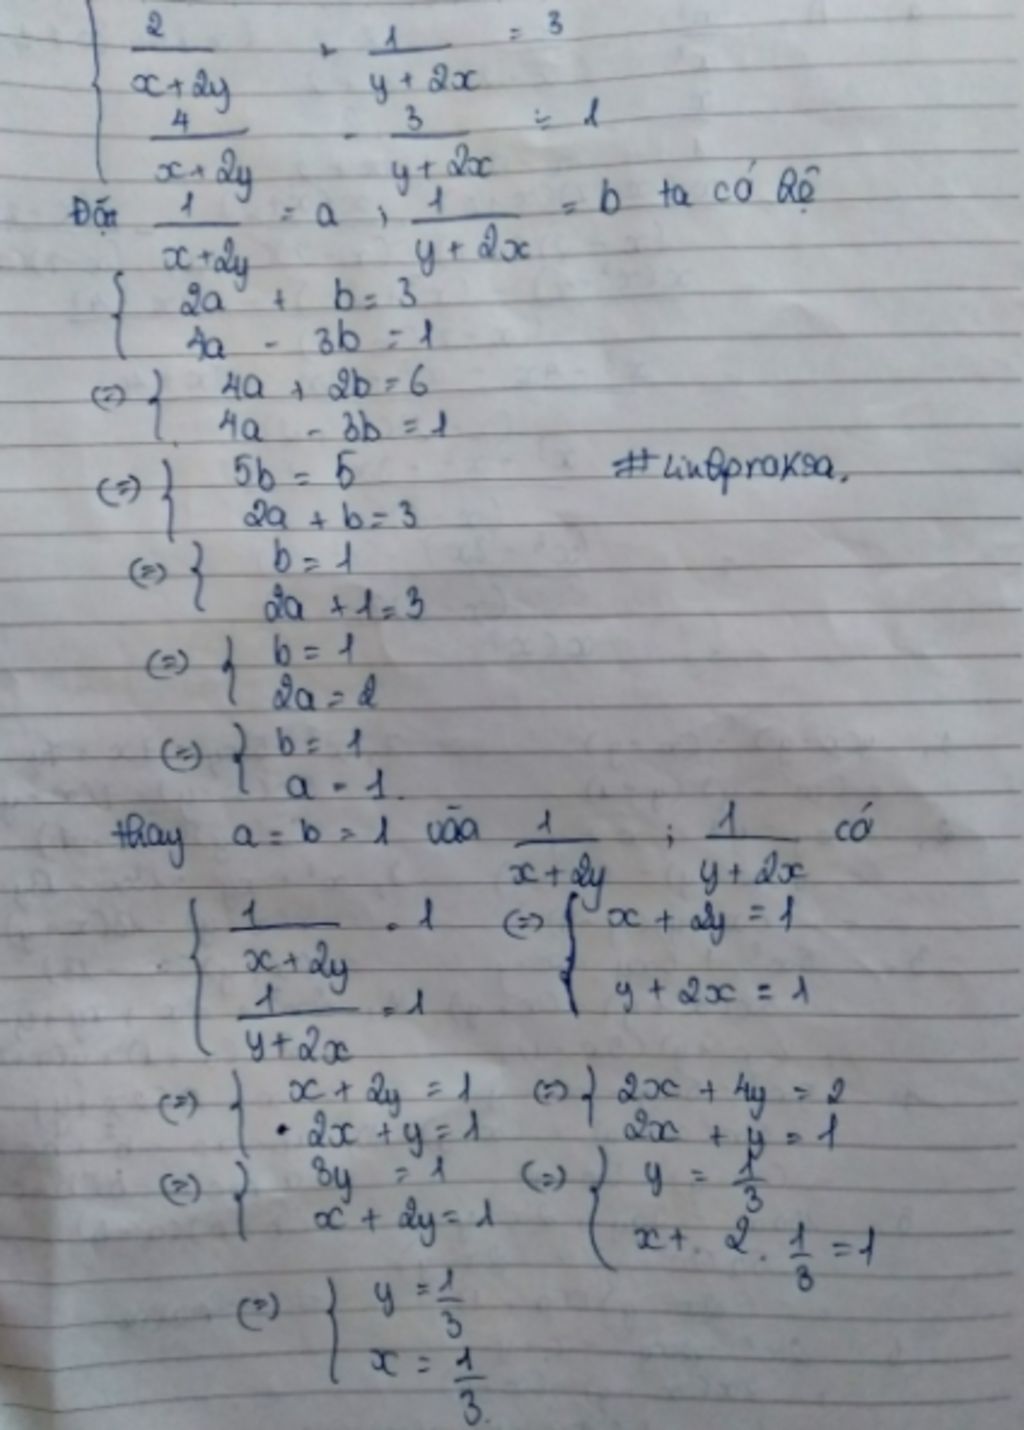 { 2/(x+2y) + 1/(y+2x) = 3
4/(x+2y) - 3/(y+2x) = 1
Đặt 1/(x+2y) = a ; 1/(y+2x) = b ta có hệ
{ 2a + b = 3
4a - 3b = 1
(=) { 4a + 2b = 6
4a - 3b = 1
(=) { 5b = 5
2a + b = 3
(=) { b = 1
2a + 1 = 3
(=) { b = 1
2a = 2
(=) { b = 1
a = 1.
thay a = b = 1 vào 1/(x+2y) ; 1/(y+2x) có
{ 1/(x+2y) = 1 (=) { x + 2y = 1
1/(y+2x) = 1 y + 2x = 1
(=) { x + 2y = 1 (=) { 2x + 4y = 2
2x + y = 1 2x + y = 1
(=) { 3y = 1 (=) { y = 1/3
x + 2y = 1 x + 2 . 1/3 = 1
(=) { y = 1/3
x = 1/3.